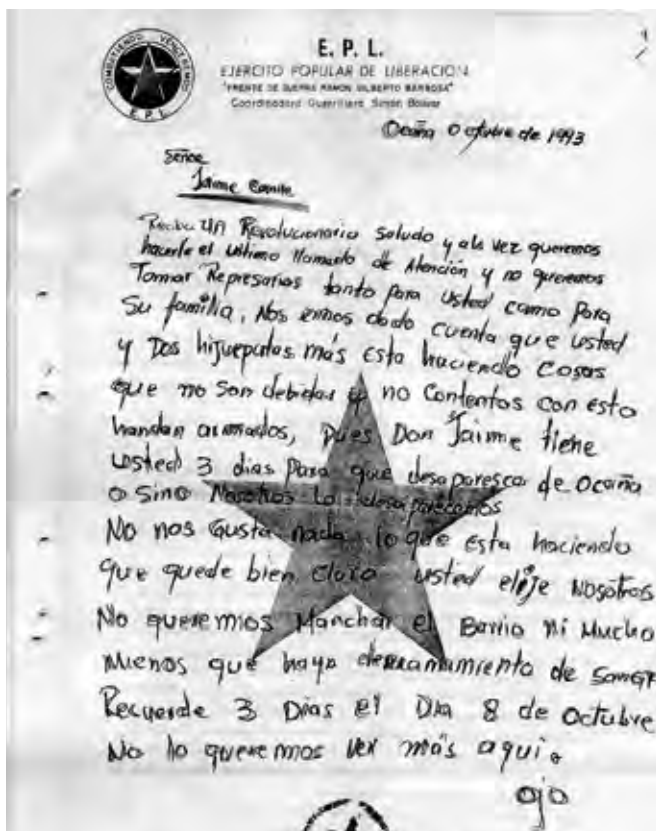 COMBATIENDO VENCEREMOS
E.P.L.
E. P. L.
EJERCITO POPULAR DE LIBERACION
"FRENTE DE GUERRA RAMON GILBERTO BARBOSA"
Coordinadora Guerrillera Simón Bolívar
Ocaña Octubre de 1993
Señor
Jaime
Reciba UN Revolucionario Saludo y a la vez queremos
hacerle el ultimo llamado de Atención y no queremos
Tomar Represarias tanto para usted como para
Su familia, Nos emos dado cuenta que usted
y Dos hijueputas más esta haciendo Cosas
que no son debidas y no Contentos con esto
handan armados, Pues Don Jaime tiene
usted 3 dias para que desaparesca de Ocaña
o Sino Nosotros lo desaparecemos
No nos Gusta nada lo que esta haciendo
que quede bien claro usted elije Nosotros
No queremios Manchar el Barrio Ni Mucho
Mienos que haya derramamiento de Sangre
Recuerde 3 Dias el Dia 8 de Octubre
No lo queremos ver más aqui.
ojo